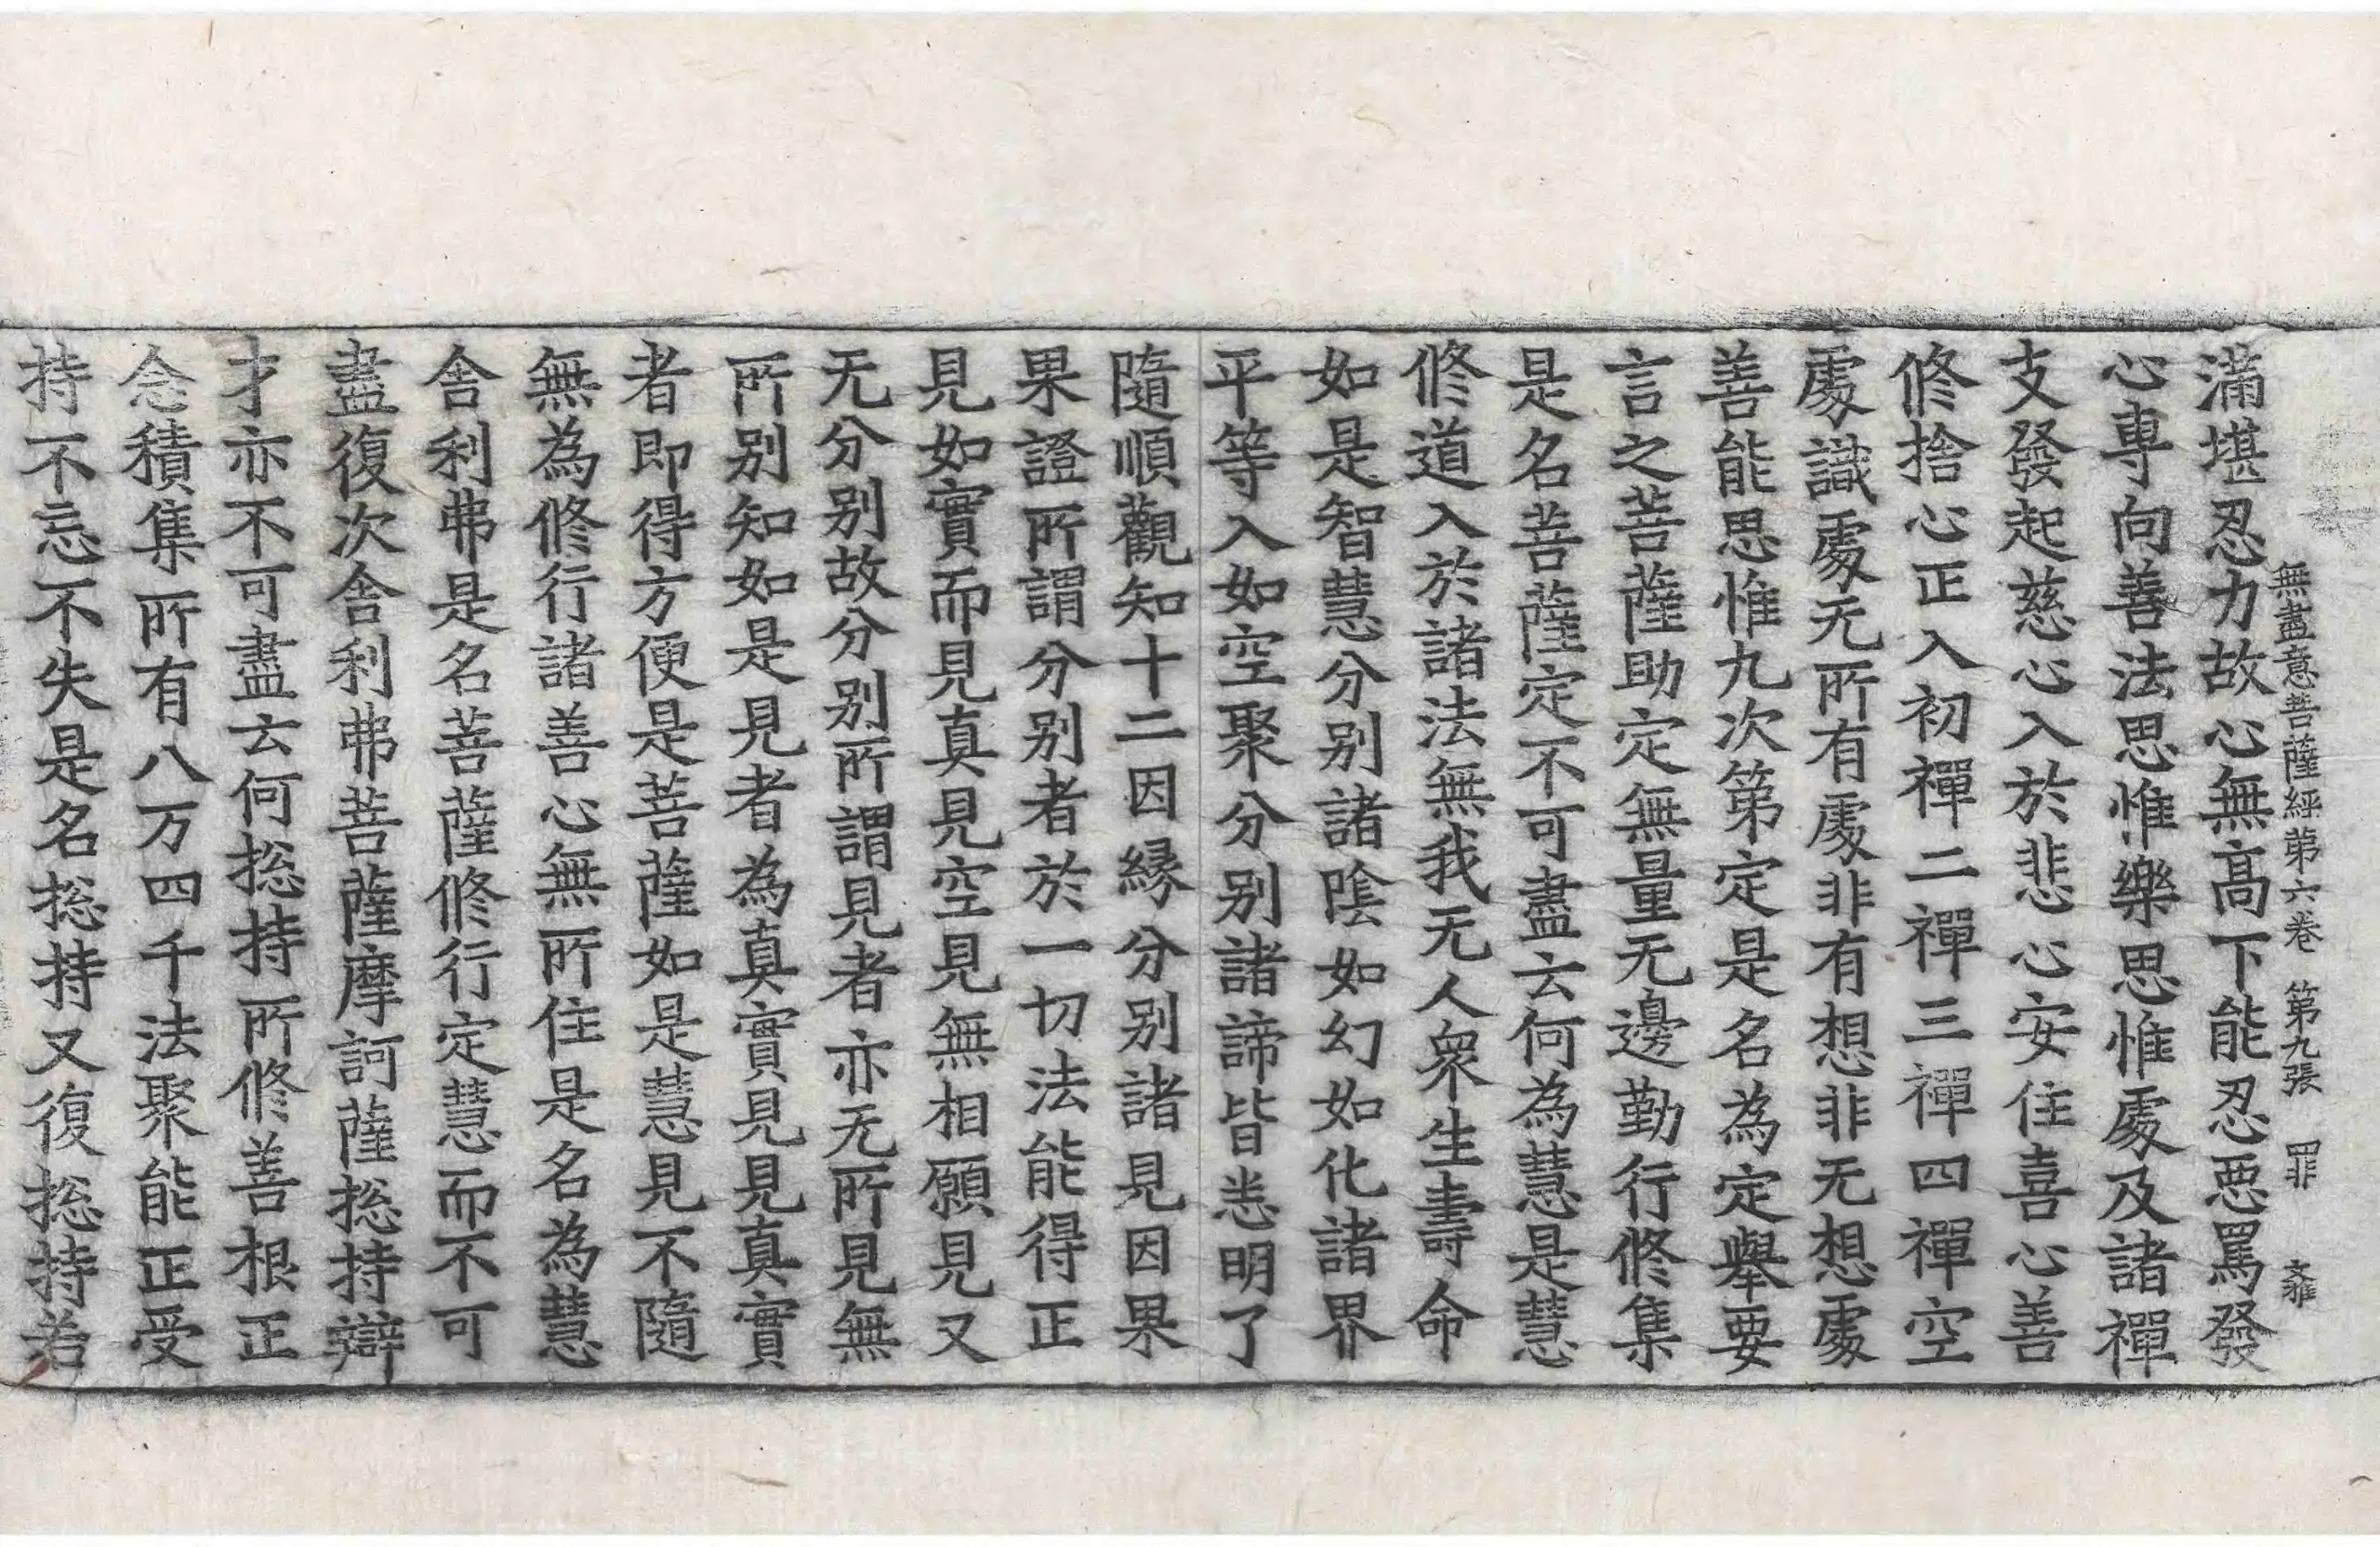 無盡意菩薩經第六卷 第九張 罪
滿堪忍力故心無髙下能忍惡罵發
心專向善法思惟樂思惟處及諸禪
支發起慈心入於悲心安住喜心善
修捨心正入初禪二禪三禪四禪空
處識處无所有處非有想非无想處
善能思惟九次第定是名為定舉要
言之菩薩助定無量无邊勤行修集
是名菩薩定不可盡云何為慧是慧
修道入於諸法無我无人衆生壽命
如是智慧分別諸陰如幻如化諸界
平等入如空聚分別諸諦皆悉明了
隨順觀知十二因緣分別諸見因果
果證所謂分別者於一切法能得正
見如實而見真見空見無相願見又
无分別故分別所謂見者亦无所見無
所別知如是見者為真實見見真實
者即得方便是菩薩如是慧見不隨
無為修行諸善心無所住是名為慧
舍利弗是名菩薩修行定慧而不可
盡復次舍利弗菩薩摩訶薩捴持辯
才亦不可盡云何捴持所修善根正
念積集所有八万四千法聚能正受
持不忘不失是名捴持又復捴持若